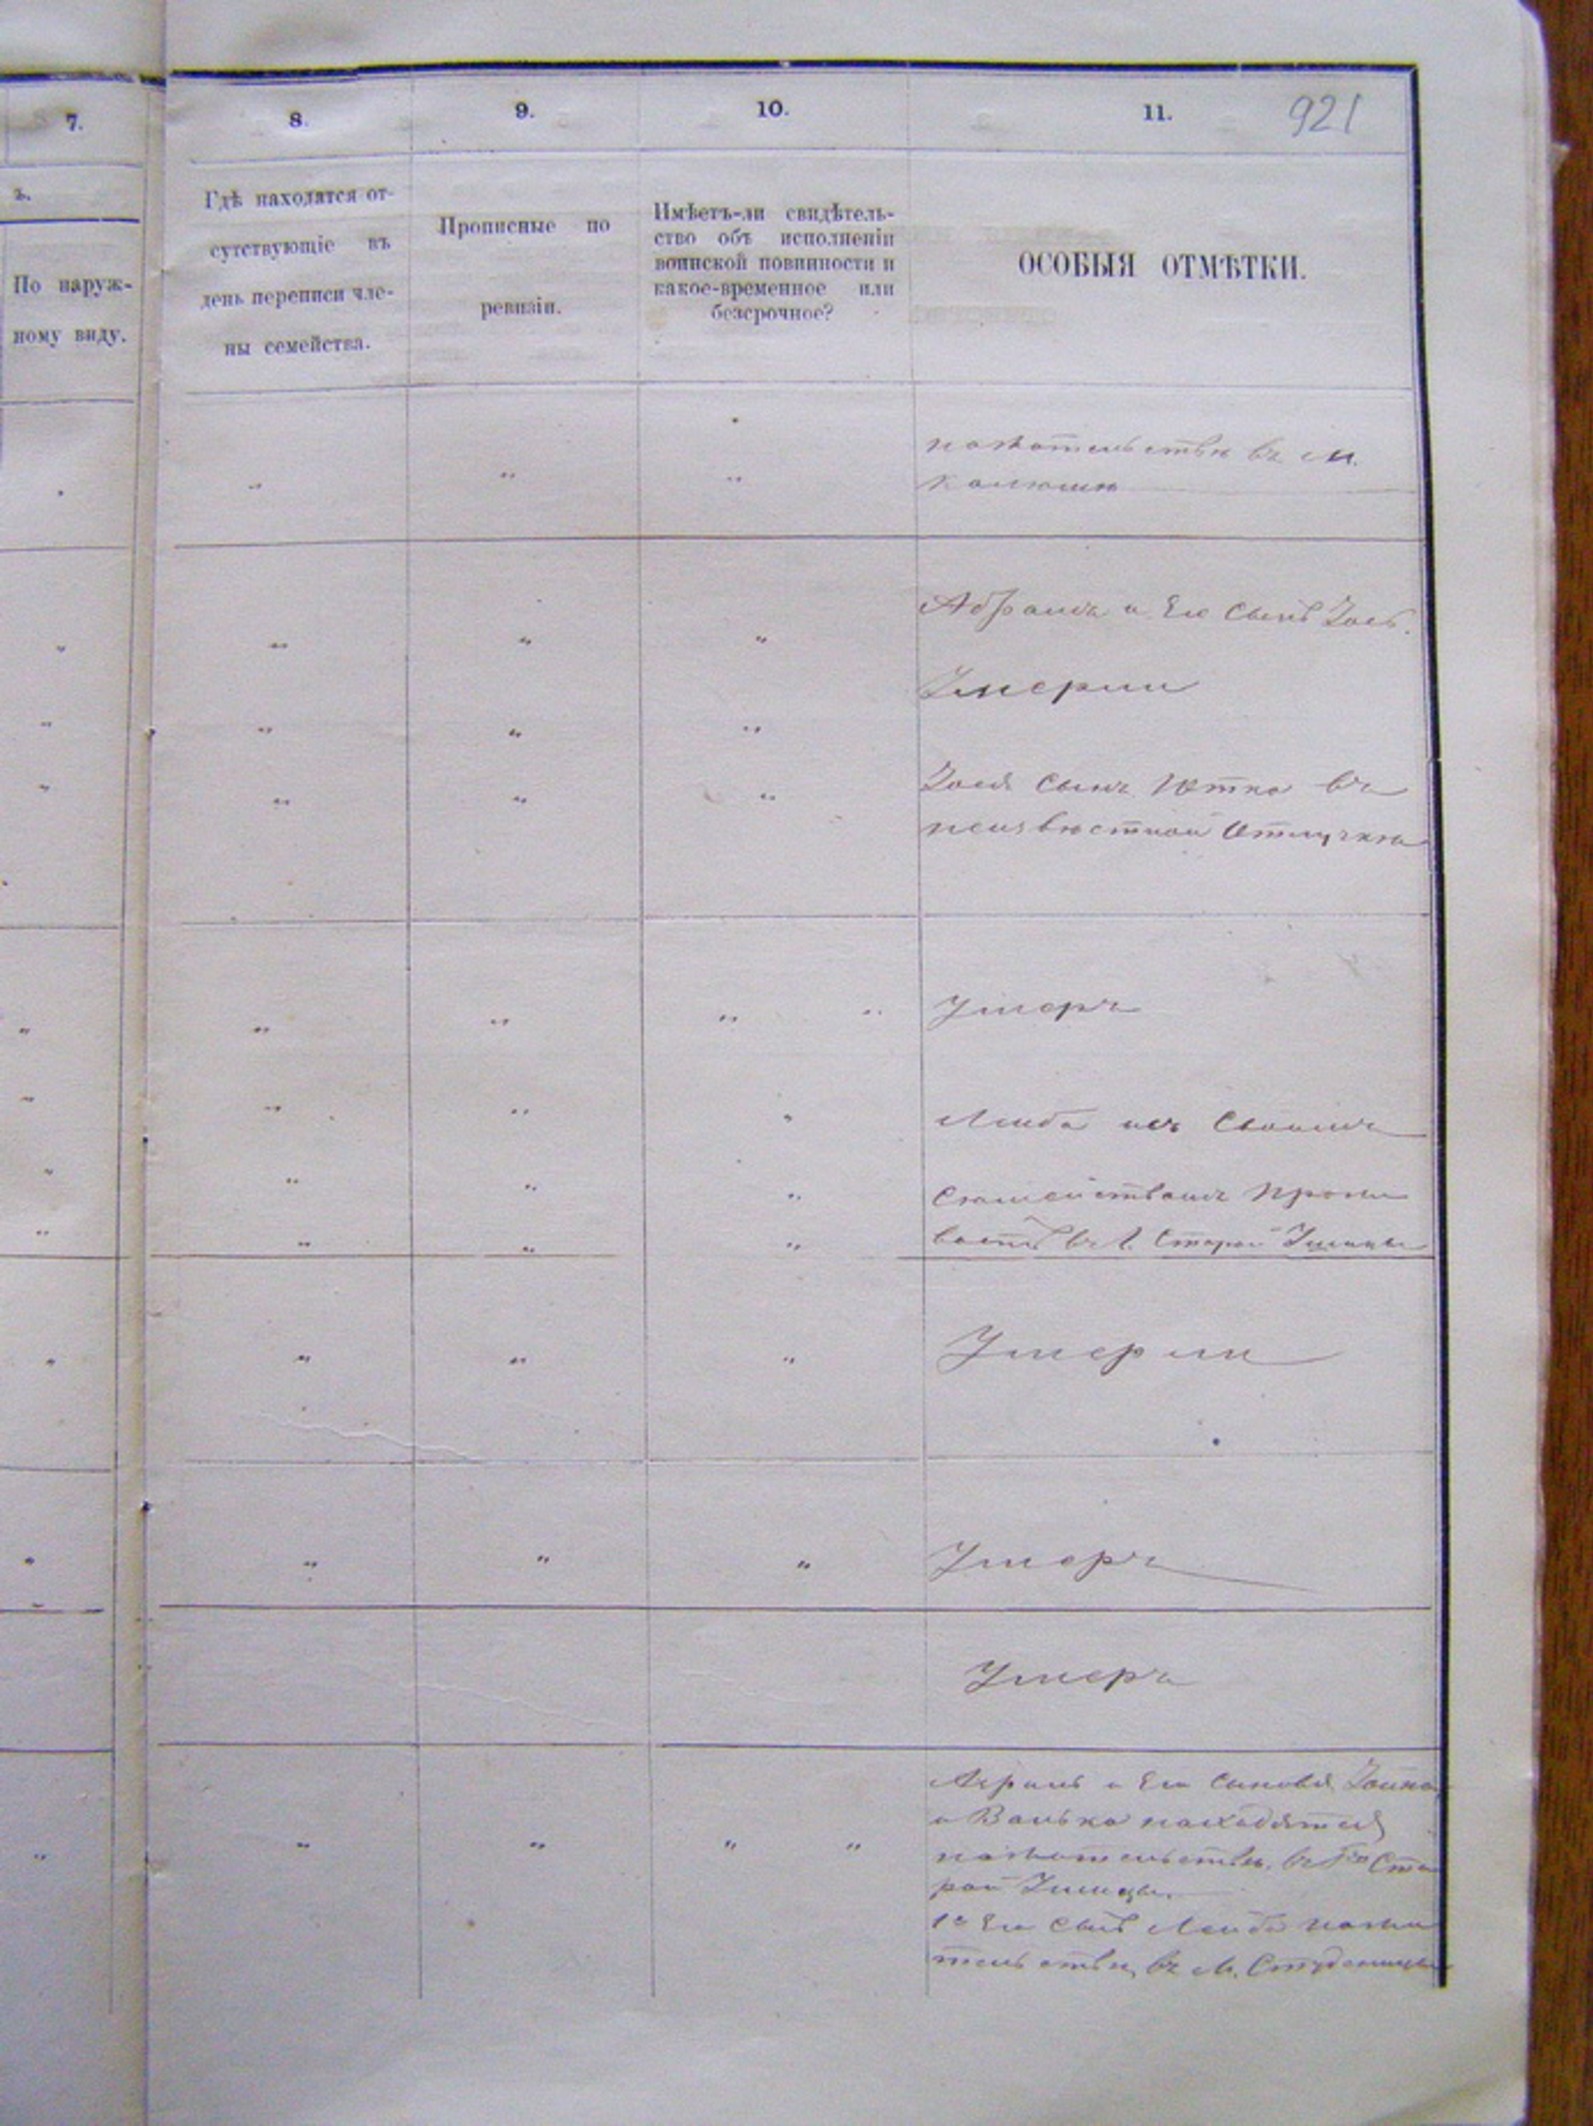 7.
8.
9.
10.
11.
921
ъ.
По наруж-
ному виду.
Гдѣ находятся от-
сутствующіе въ
день переписи чле-
ны семейства.
Прописные по
ревизіи.
Имѣетъ-ли свидѣтель-
ство объ исполненіи
воинской повинности и
какое-временное или
безсрочное?
ОСОБЫЯ ОТМѢТКИ.
пожительствѣ въ М.
Калюшѣ
Абрамъ и Его Сынъ
Умерли
Сынъ Ютко въ
неизвѣстной Отлучкѣ
Умеръ
Лейба Своимъ
Семействомъ Прожи
ваетъ въ Старой Ушицы
Умерли
Умеръ
Умеръ
и Его Сыновья
и Волько находятся
пожительствѣ въ Ста
рой Ушицы.
1й Его Сынъ Лейба пожи
тельствѣ въ М. Студеницы